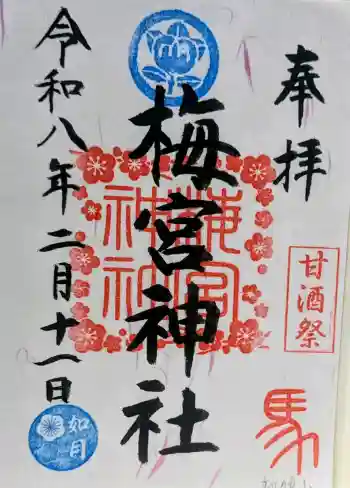 奉拝
甘酒祭
馬
梅宮神社
梅宮
神社
令和八年二月十一日
如月